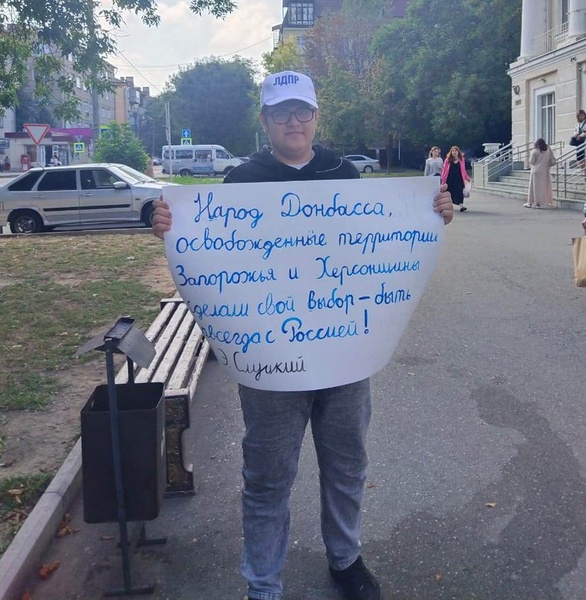 ЛДПР
Народ Донбасса,
освобожденные территории
Запорожья и Херсонщины
сделали свой выбор – быть
навсегда с Россией!
Э. Слуцкий